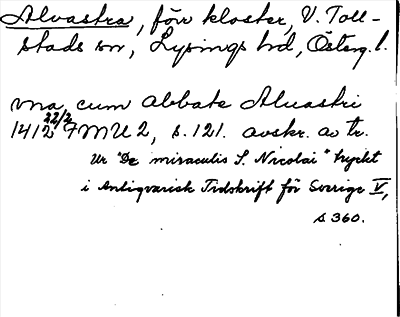 Alvastra, förr kloster, V. Toll-
stads sn, Lysings hd, Österg. l.
vna cum abbate Aluastri
22/2
1412 FMU 2, s. 121. avskr. av tr.
Ur "De miraculis S. Nicolai" tryckt
i Antiqvarisk Tidskrift för Sverige V,
s 360.